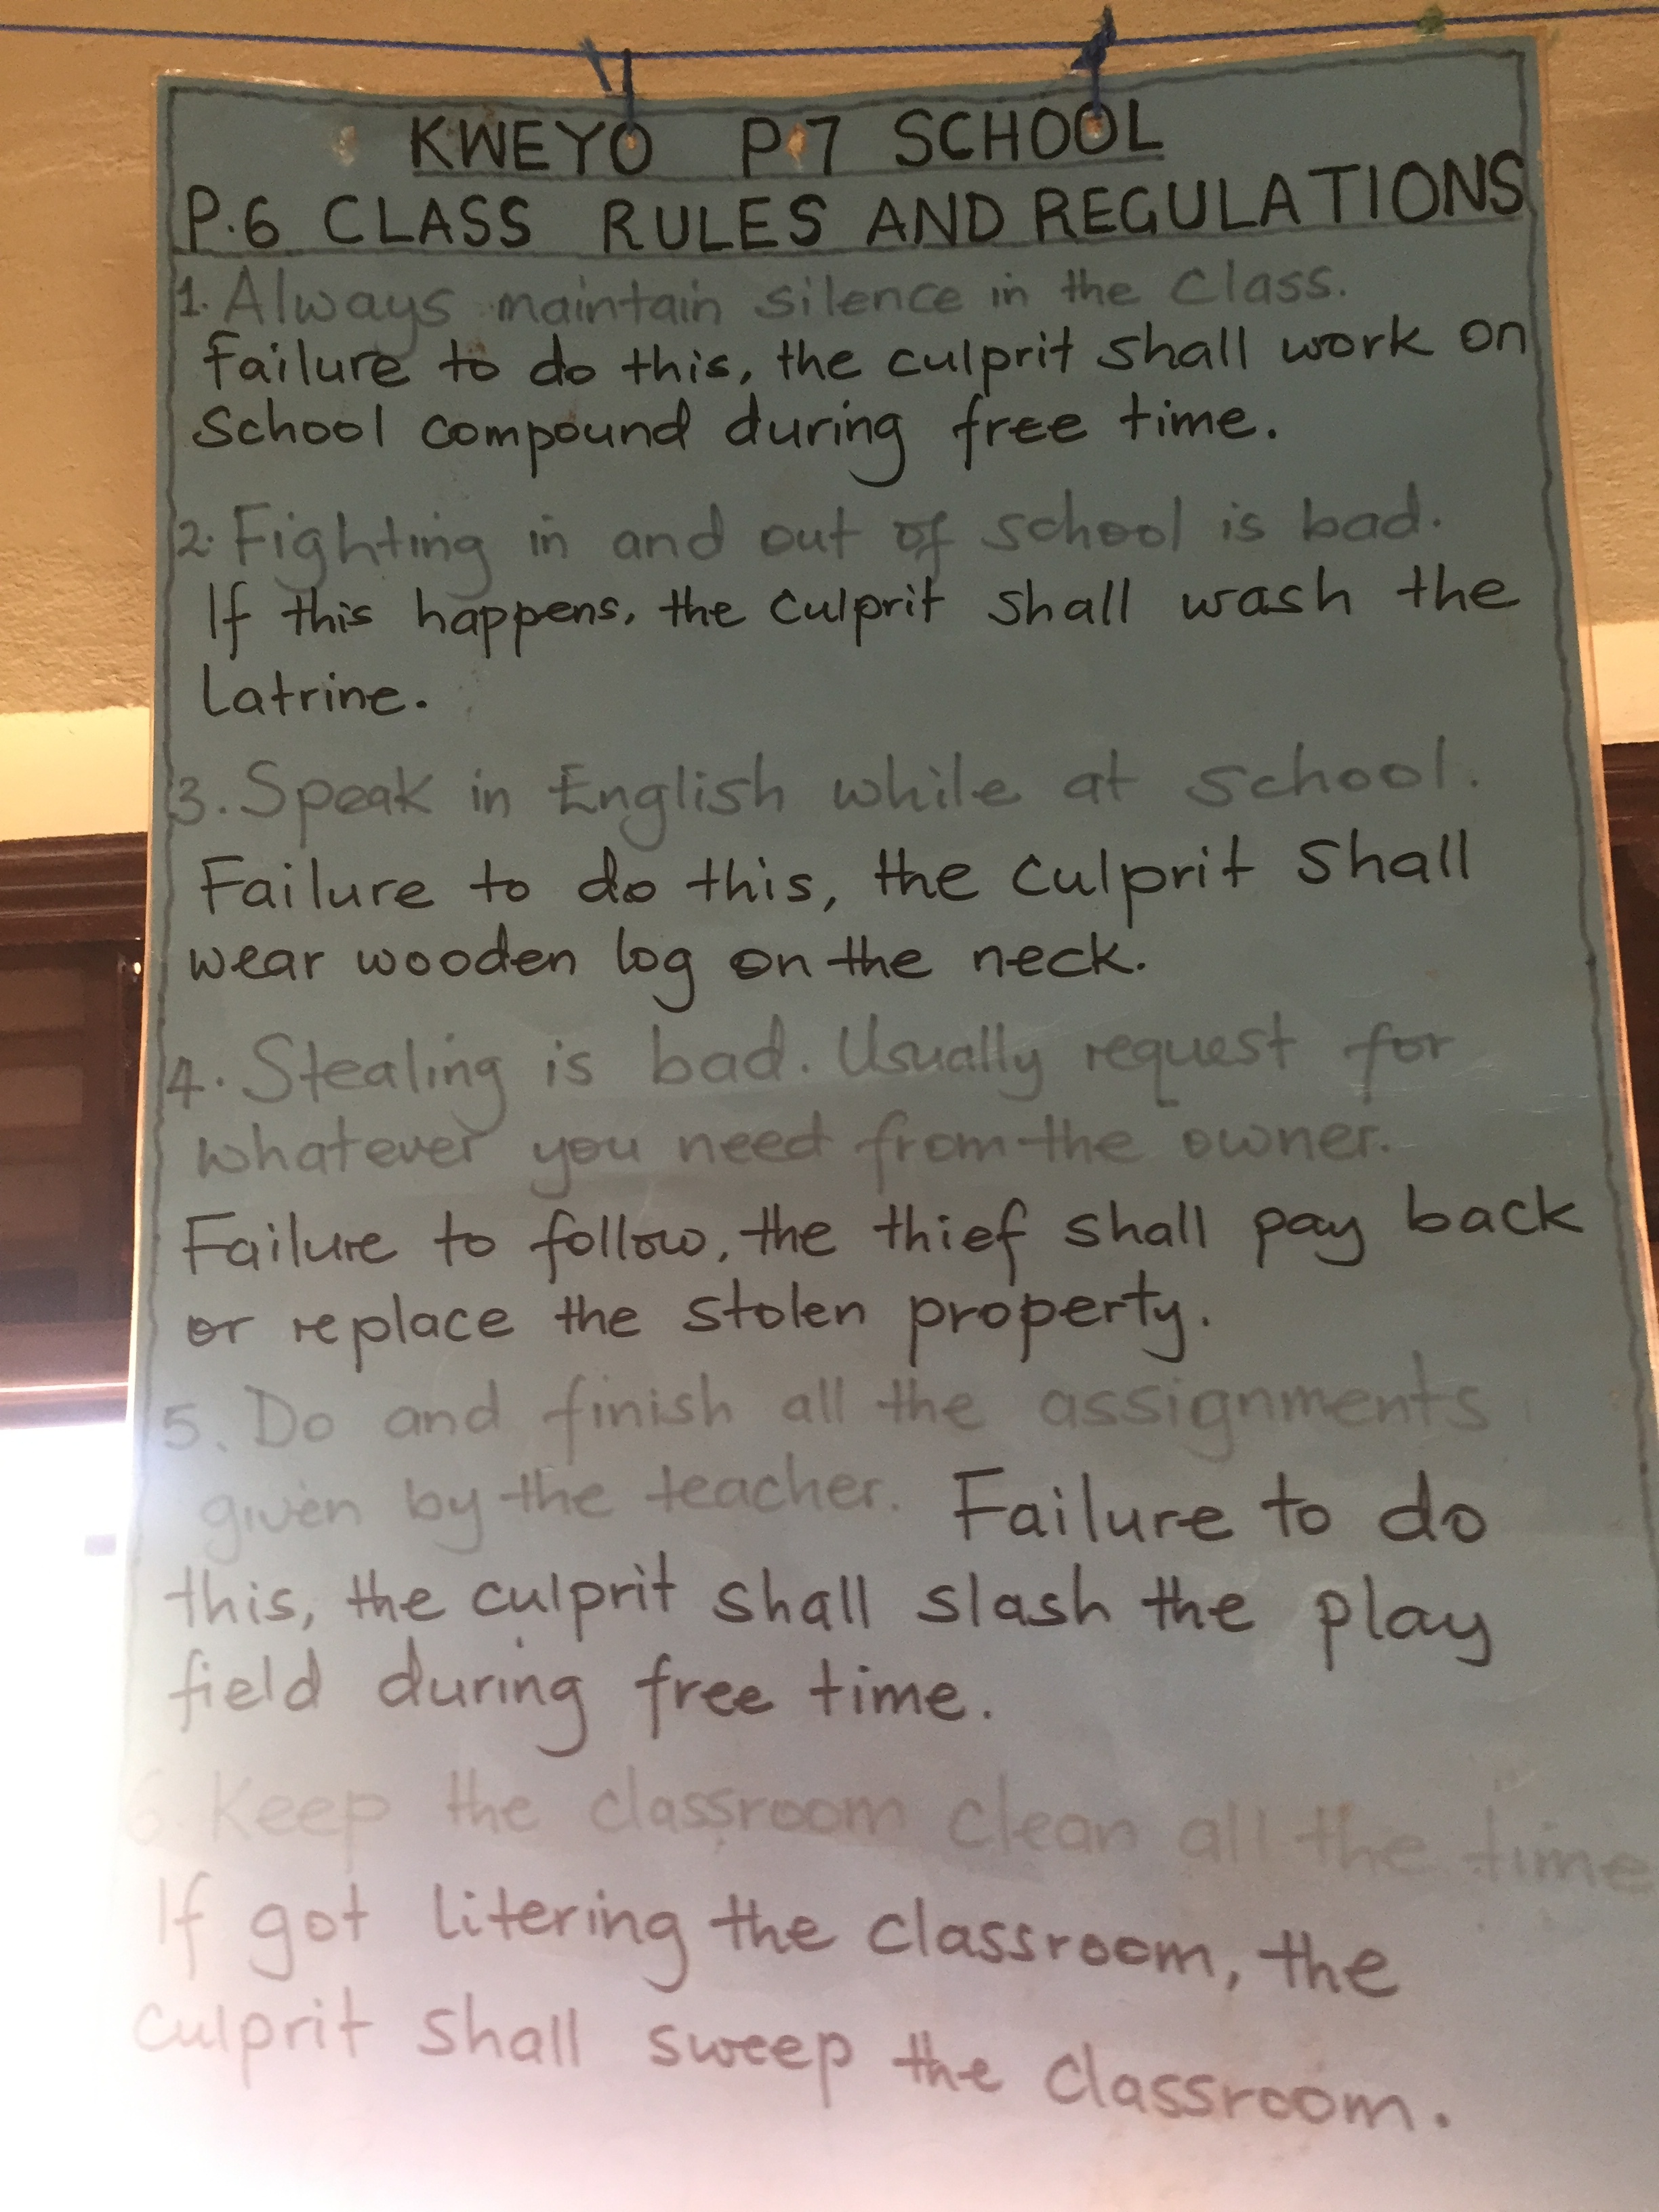 KWEYO P.7 SCHOOL
P.6 CLASS RULES AND REGULATIONS
1. Always maintain silence in the class.
failure to do this, the culprit shall work on
School compound during free time.
2. Fighting in and out of school is bad.
If this happens, the culprit shall wash the
Latrine.
3. Speak in English while at school.
Failure to do this, the culprit shall
wear wooden log on the neck.
4. Stealing is bad. Usually request for
whatever you need from the owner.
Failure to follow, the thief shall pay back
or replace the stolen property.
5. Do and finish all the assignments
given by the teacher. Failure to do
this, the culprit shall slash the play
field during free time.
6. Keep the classroom clean all the time
If got litering the classroom, the
culprit shall sweep the classroom.